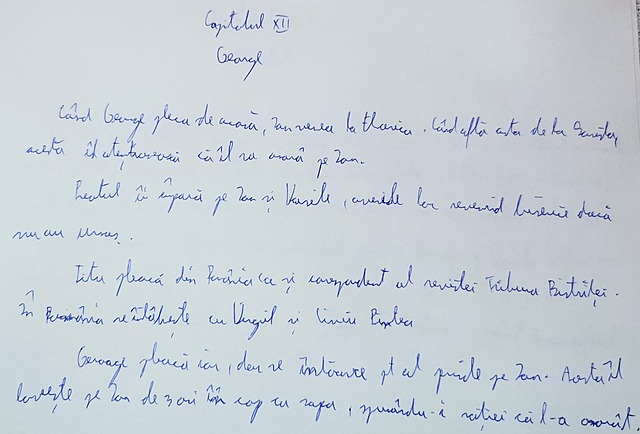 Capitolul XII
George
Când George pleca de acasă, Ion venea la Florica. Când află asta de la Savista,
acesta îl atenționează că îl va omorî pe Ion.
Preotul îi împacă pe Ion și Vasile, averile lor revenind bisericii dacă
nu au urmaș.
Titu pleacă din România ca și corespondent al revistei Tribuna Bistriței.
În România se întâlnește cu Virgil și Liviu
George pleacă iar, dar se întoarce pt al prinde pe Ion. Acesta îl
lovește pe Ion de 3 ori în cap cu sapa, spunându-i soției că l-a omorât.